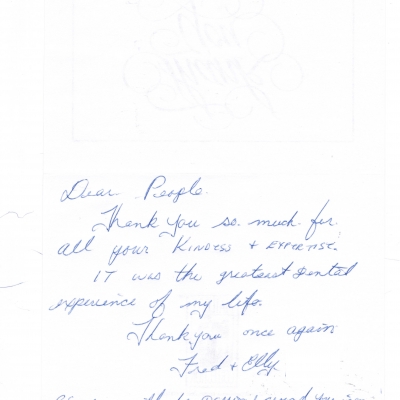 Dear People.
Thank you so much for
all your KINDESS + EXPERTISE.
IT was the greatest dental
experience of my life.
Thank you once again
Fred + Elly